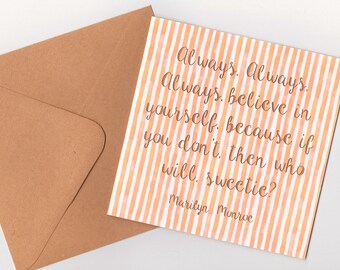 Always. Always.
Always. believe in
yourself. because if
you don't. then who
will. sweetie?
Marilyn Monroe